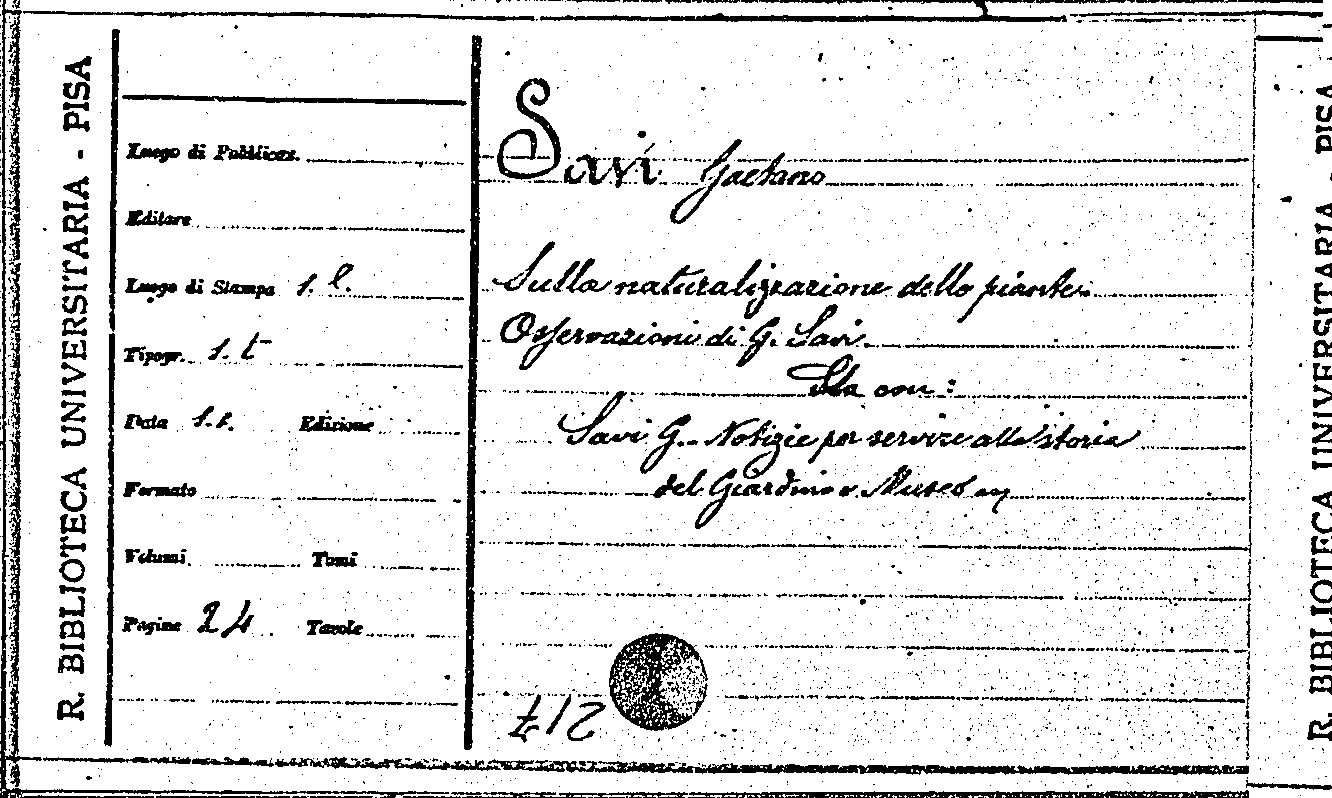 R. BIBLIOTECA UNIVERSITARIA - PISA
Luogo di Pubblicaz.
Editore
Luogo di Stampa s. l.
Tipogr. s. t
Data s. s. Edizione
Formato
Volumi Tomi
Pagine 24 Tavole
Savi Gaetano
Sulla naturalizzazione delle piante.
Osservazioni di G. Savi.
Sta con:
Savi G. Notizie per servire alla storia
del Giardino e Museo
217
R. BIBLIOTECA UNIVERSITARIA - PISA